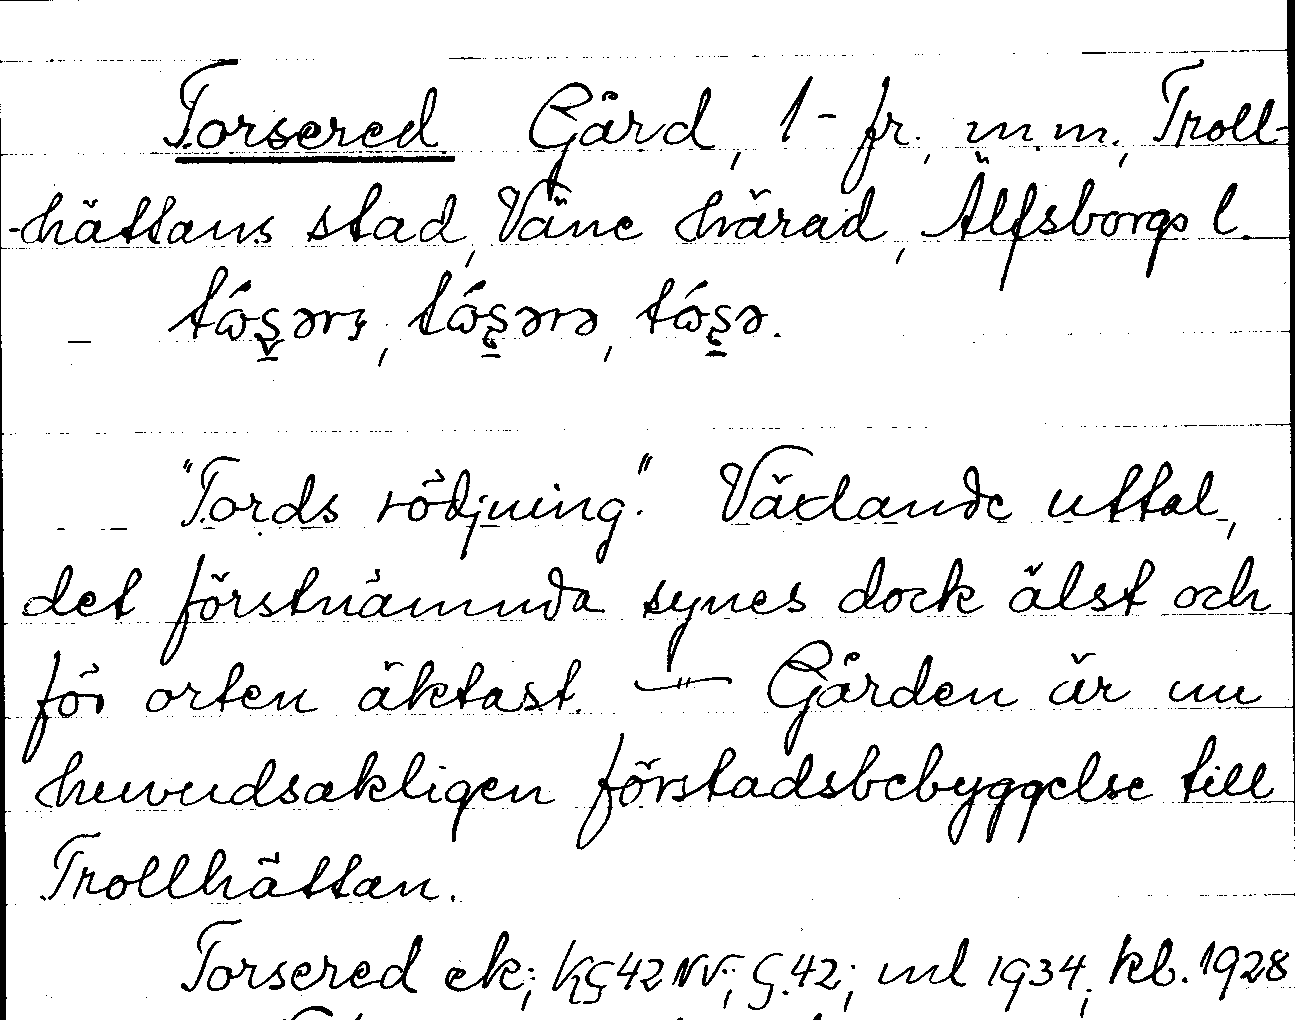 Torsered Gård, 1-fr., m.m., Troll-
-hättans stad, Väne härad, Älfsborgs l.
"Tords rödjning". Växlande uttal,
det förstnämnda synes dock älst och
för orten äktast. — Gården är nu
huvudsakligen förstadsbebyggelse till
Trollhättan.
Torsered ek; 42 NV; G.42; ml 1934, kb. 1928